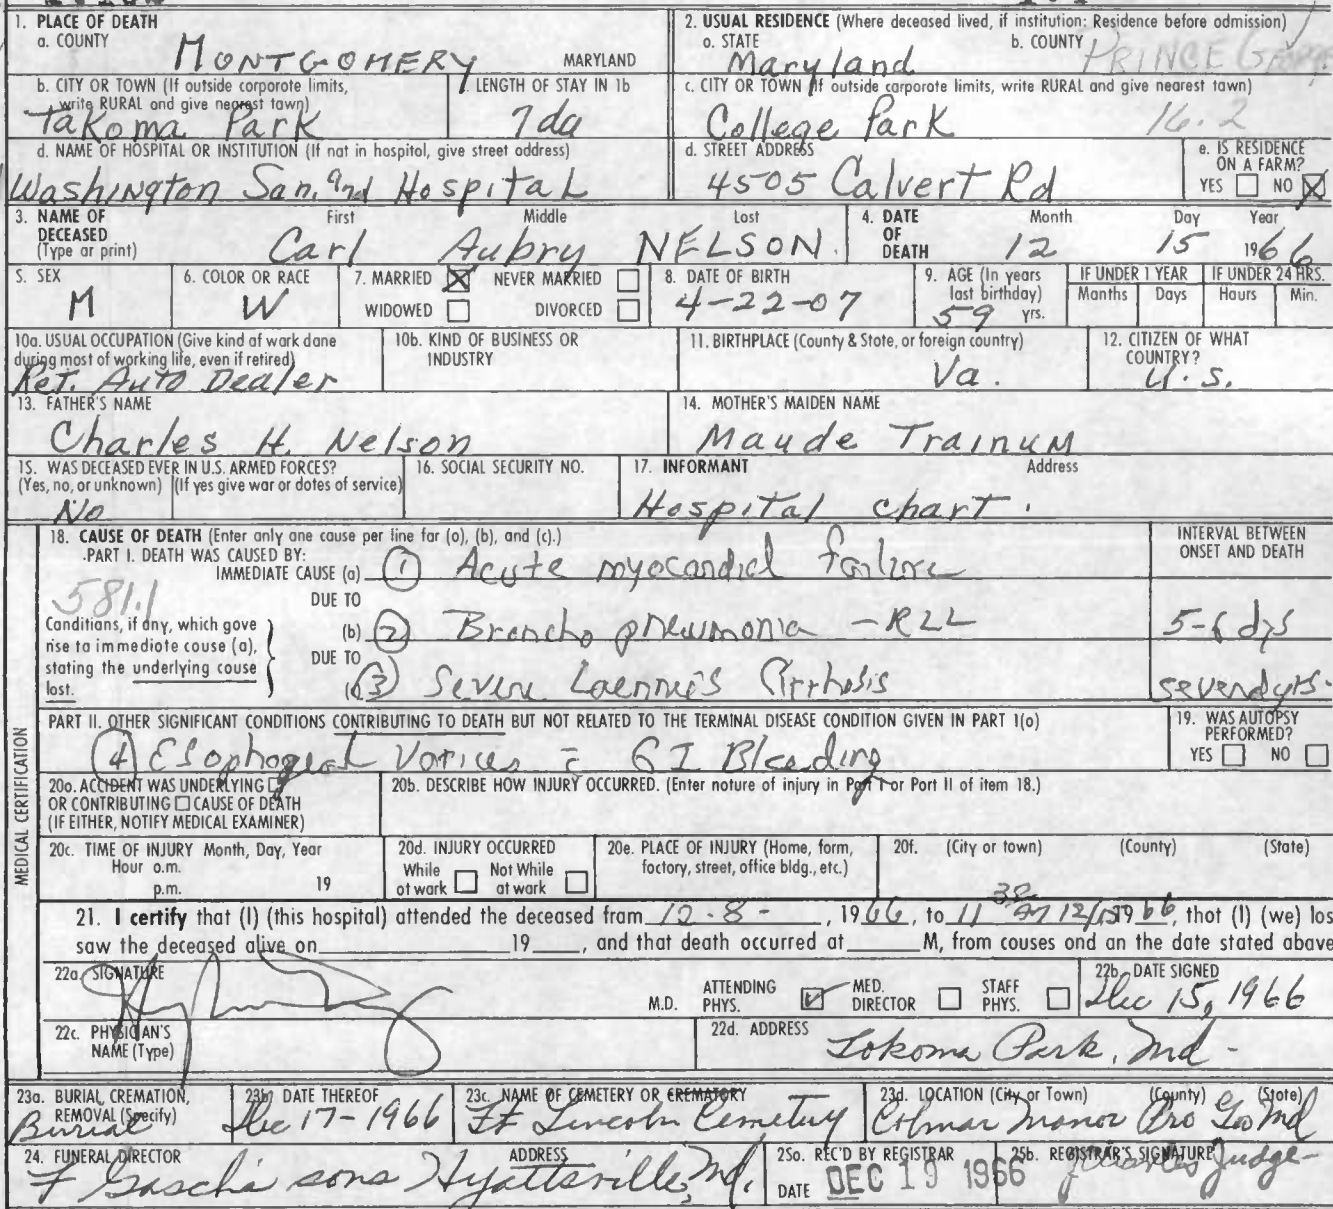 1. PLACE OF DEATH
a. COUNTY
MONTGOMERY MARYLAND
2. USUAL RESIDENCE (Where deceased lived, if institution: Residence before admission)
a. STATE b. COUNTY
Maryland PRINCE George
b. CITY OR TOWN (If outside corporate limits, write RURAL and give nearest town)
Takoma Park
LENGTH OF STAY IN 1b
7 da
c. CITY OR TOWN (If outside corporate limits, write RURAL and give nearest town)
College Park 16.2
d. NAME OF HOSPITAL OR INSTITUTION (If not in hospital, give street address)
Washington San. and Hospital
d. STREET ADDRESS
4505 Calvert Rd
e. IS RESIDENCE ON A FARM?
YES NO X
3. NAME OF DECEASED (Type or print)
First Middle Last
Carl Aubry NELSON.
4. DATE OF DEATH
Month Day Year
12 15 1966
5. SEX
M
6. COLOR OR RACE
W
7. MARRIED X NEVER MARRIED
WIDOWED DIVORCED
8. DATE OF BIRTH
4-22-07
9. AGE (In years last birthday)
59 yrs.
IF UNDER 1 YEAR
Months Days
IF UNDER 24 HRS.
Hours Min.
10a. USUAL OCCUPATION (Give kind of work done during most of working life, even if retired)
Ret. Auto Dealer
10b. KIND OF BUSINESS OR INDUSTRY
11. BIRTHPLACE (County & State, or foreign country)
Va.
12. CITIZEN OF WHAT COUNTRY?
U.S.
13. FATHER'S NAME
Charles H. Nelson
14. MOTHER'S MAIDEN NAME
Maude Trainum
15. WAS DECEASED EVER IN U.S. ARMED FORCES?
(Yes, no, or unknown) (If yes give war or dates of service)
No
16. SOCIAL SECURITY NO.
17. INFORMANT Address
Hospital chart.
18. CAUSE OF DEATH (Enter only one cause per line for (a), (b), and (c).)
PART I. DEATH WAS CAUSED BY:
IMMEDIATE CAUSE (a) 1 Acute myocardial failure
INTERVAL BETWEEN ONSET AND DEATH
581.1
DUE TO
Conditions, if any, which gave rise to immediate cause (a), stating the underlying cause last.
(b) 2 Broncho pneumonia - RLL 5-6 dys
DUE TO
(c) 3 Severe Laennec's Cirrhosis several yrs.
MEDICAL CERTIFICATION
PART II. OTHER SIGNIFICANT CONDITIONS CONTRIBUTING TO DEATH BUT NOT RELATED TO THE TERMINAL DISEASE CONDITION GIVEN IN PART I(a)
4 Esophageal Varices c̄ GI Bleeding
19. WAS AUTOPSY PERFORMED?
YES NO
20a. ACCIDENT WAS UNDERLYING
OR CONTRIBUTING CAUSE OF DEATH
(IF EITHER, NOTIFY MEDICAL EXAMINER)
20b. DESCRIBE HOW INJURY OCCURRED. (Enter nature of injury in Part I or Part II of item 18.)
20c. TIME OF INJURY Month, Day, Year
Hour a.m.
p.m. 19
20d. INJURY OCCURRED
While at work Not While at work
20e. PLACE OF INJURY (Home, farm, factory, street, office bldg., etc.)
20f. (City or town) (County) (State)
21. I certify that (I) (this hospital) attended the deceased from 12-8-, 1966, to 11 30 12/15 1966, that (I) (we) las
saw the deceased alive on 19 , and that death occurred at M, from causes and on the date stated above
22a. SIGNATURE
M.D. ATTENDING PHYS. ✓ MED. DIRECTOR STAFF PHYS.
22b. DATE SIGNED
Dec 15, 1966
22c. PHYSICIAN'S NAME (Type)
22d. ADDRESS
Takoma Park, Md -
23a. BURIAL, CREMATION, REMOVAL (Specify)
Burial
23b. DATE THEREOF
Dec 17-1966
23c. NAME OF CEMETERY OR CREMATORY
Ft Lincoln Cemetery
23d. LOCATION (City or Town) (County) (State)
Colmar Manor Pro Geo Md
24. FUNERAL DIRECTOR ADDRESS
F Gasch's sons Hyattsville, Md.
25a. REC'D BY REGISTRAR
DATE DEC 19 1966
25b. REGISTRAR'S SIGNATURE
J Charles Judge